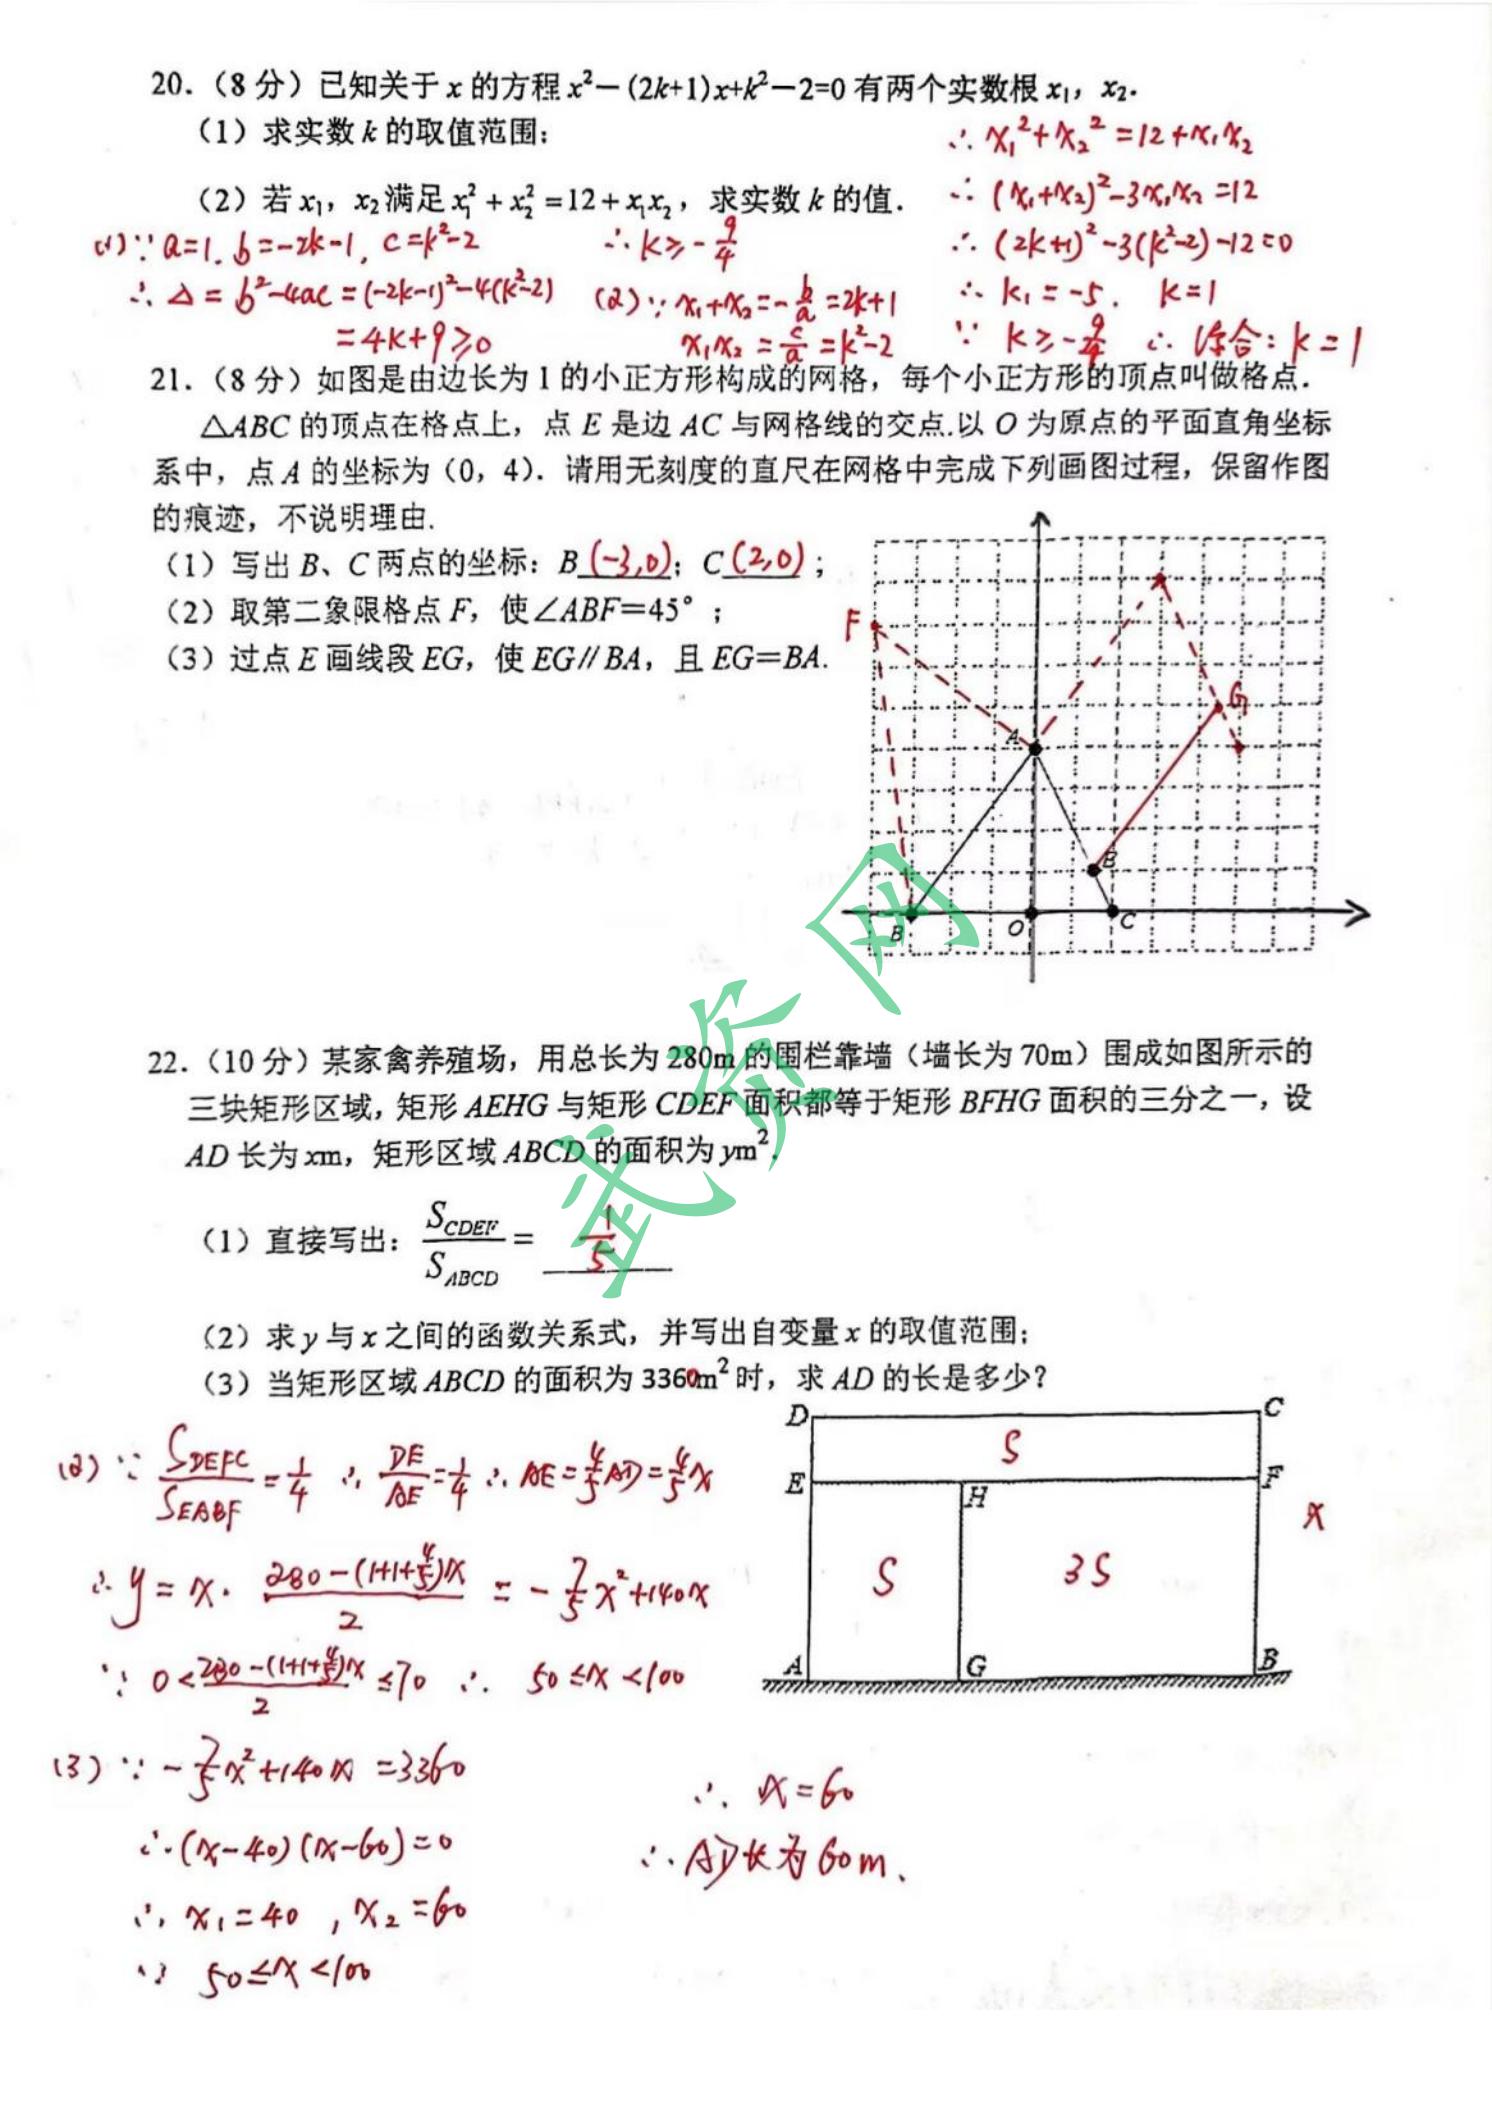 20.（8 分）已知关于 x 的方程 x²－(2k+1)x+k²－2=0 有两个实数根 x₁，x₂.
（1）求实数 k 的取值范围；
（2）若 x₁，x₂满足 x₁²+x₂²=12+x₁x₂，求实数 k 的值.
(1)∵a=1, b=-2k-1, c=k²-2
∴△=b²-4ac=(-2k-1)²-4(k²-2)
=4k+9≥0
∴k≥-9/4
(2)∵x₁+x₂=-b/a=2k+1
x₁x₂=c/a=k²-2
∴x₁²+x₂²=12+x₁x₂
∴(x₁+x₂)²-3x₁x₂=12
∴(2k+1)²-3(k²-2)-12=0
∴k₁=-5, k=1
∵k≥-9/4 ∴综合：k=1
21.（8 分）如图是由边长为 1 的小正方形构成的网格，每个小正方形的顶点叫做格点.
△ABC 的顶点在格点上，点 E 是边 AC 与网格线的交点.以 O 为原点的平面直角坐标
系中，点 A 的坐标为（0，4）.请用无刻度的直尺在网格中完成下列画图过程，保留作图
的痕迹，不说明理由.
（1）写出 B、C 两点的坐标：B (-3,0)；C (2,0)；
（2）取第二象限格点 F，使∠ABF＝45°；
（3）过点 E 画线段 EG，使 EG∥BA，且 EG＝BA.
F
G
A
E
B
O
C
22.（10 分）某家禽养殖场，用总长为 280m 的围栏靠墙（墙长为 70m）围成如图所示的
三块矩形区域，矩形 AEHG 与矩形 CDEF 面积都等于矩形 BFHG 面积的三分之一，设
AD 长为 xm，矩形区域 ABCD 的面积为 ym².
（1）直接写出：S_CDEF/S_ABCD＝ 1/5
（2）求 y 与 x 之间的函数关系式，并写出自变量 x 的取值范围；
（3）当矩形区域 ABCD 的面积为 3360m²时，求 AD 的长是多少？
(2)∵S_DEFC/S_EABF=1/4 ∴DE/AE=1/4 ∴AE=4/5AD=4/5x
∴y=x·(280-(1+1+4/5)x)/2=-7/5x²+140x
∵0<(280-(1+1+4/5)x)/2≤70 ∴50≤x<100
(3)∵-7/5x²+140x=3360
∴(x-40)(x-60)=0
∴x₁=40，x₂=60
∵50≤x<100
∴x=60
∴AD长为60m.
D
C
S
E
H
F
x
S
3S
A
G
B
武资网